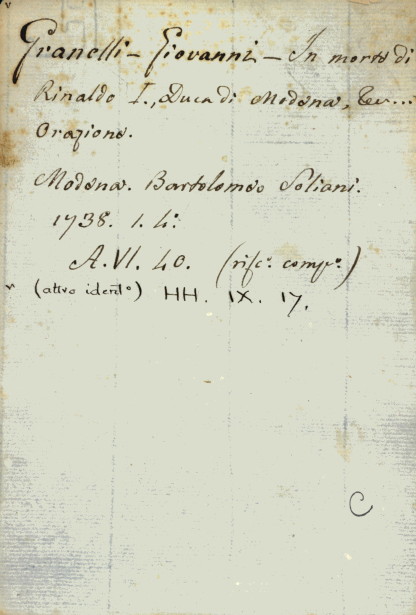 v
Granelli - Giovanni - In morte di
Rinaldo I., Duca di Modena, &c...
Orazione.
Modena. Bartolomeo Soliani.
1738. 1. 4°.
A.VI. 40. (rifc°. comp°.)
v (altro ident°) HH. IX. 17.
C